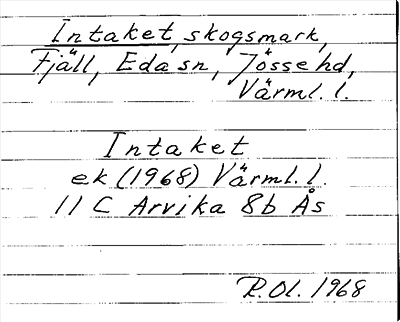 Intaket, skogsmark,
Fjäll, Eda sn, Jösse hd,
Värml. l.
Intaket
ek (1968) Värml. l.
11 C Arvika 8b Ås
R. Ol. 1968